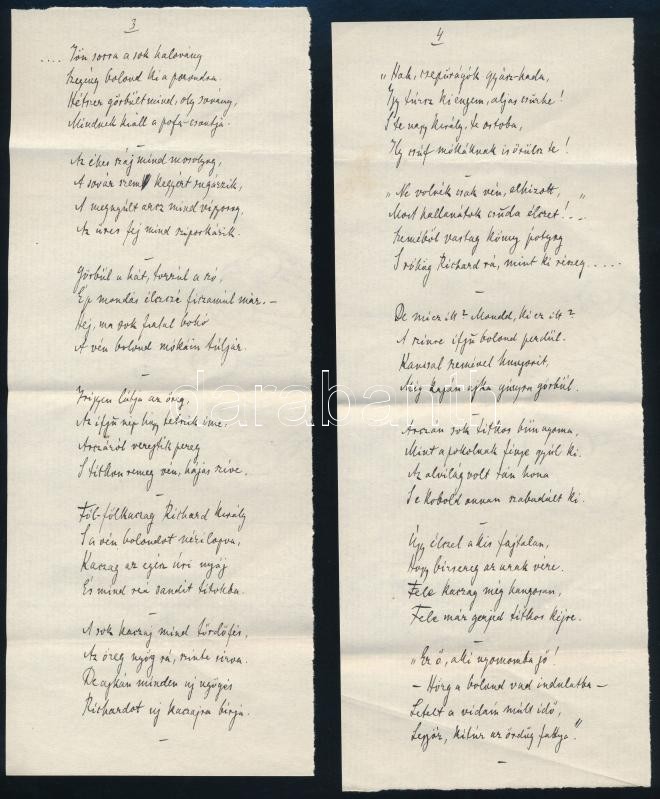 3
.... Jön sorra a sok halovány
Szegény bolond ki a porondra.
Hétszer görbült mind, oly sovány,
Mindnek kiáll a pofa-csontja.
—
Az éhes száj mind mosolyog,
A sovár szem kegyért sugárzik,
A megnyúlt arcz mind vigyorog,
Az üres fej mind szipórkázik.
—
Görbül a hát, torzul a szó,
Ép mondás élczczé ficzamul már. —
Hej, ma sok fiatal bohó
A vén bolond mókáin túljár.
—
Irigyen látja az öreg,
Az ifjú nép hogy tetszik íme,
Arczáról verejték pereg
S titkon remeg vén, hájas szíve.
—
Föl-fölkaczag Richard király
S a vén bolondot nézi lopva,
Kaczag az egész úri nyáj
És mind reá sandít titokba.
—
A sok kaczaj mind tőrdöfés,
Az öreg nyög rá, szinte sírva.
De ajkán minden uj nyögés
Richardot uj kaczajra bírja.
—
4
„Hah, csepűrágók gyász-hada,
Igy túrsz ki engem, aljas csürhe!
S te nagy király, te ostoba,
Ily csúf mókáknak is örülsz te!
—
„Ne volnék csak vén, elhízott,
Most hallanátok csuda élczet!..."
Szeméből vastag könny potyog
S röhög Richard rá, mint ki részeg .....
—
De mi ez itt? Mondd, ki ez itt?
A színre ifjú bolond perdül.
Kancsal szemével hunyorít,
Míg kaján ajka gunyra görbül.
—
Arczán sok titkos bűn nyoma,
Mint a pokolnak fénye gyúl ki.
Az alvilág volt tán hona
S e kobold onnan szabadult ki.
—
Úgy élczel a kis fajtalan,
Hogy bizsereg az urak vére.
Fele kaczag még hangosan,
Fele már gerjed titkos kéjre.
—
„Ez ő, aki nyomomba jő!
— Hörg a bolond vad indulatba —
Letelt a vidám múlt idő,
Legyőz, kitúr az ördög fattya."
—
darabanth